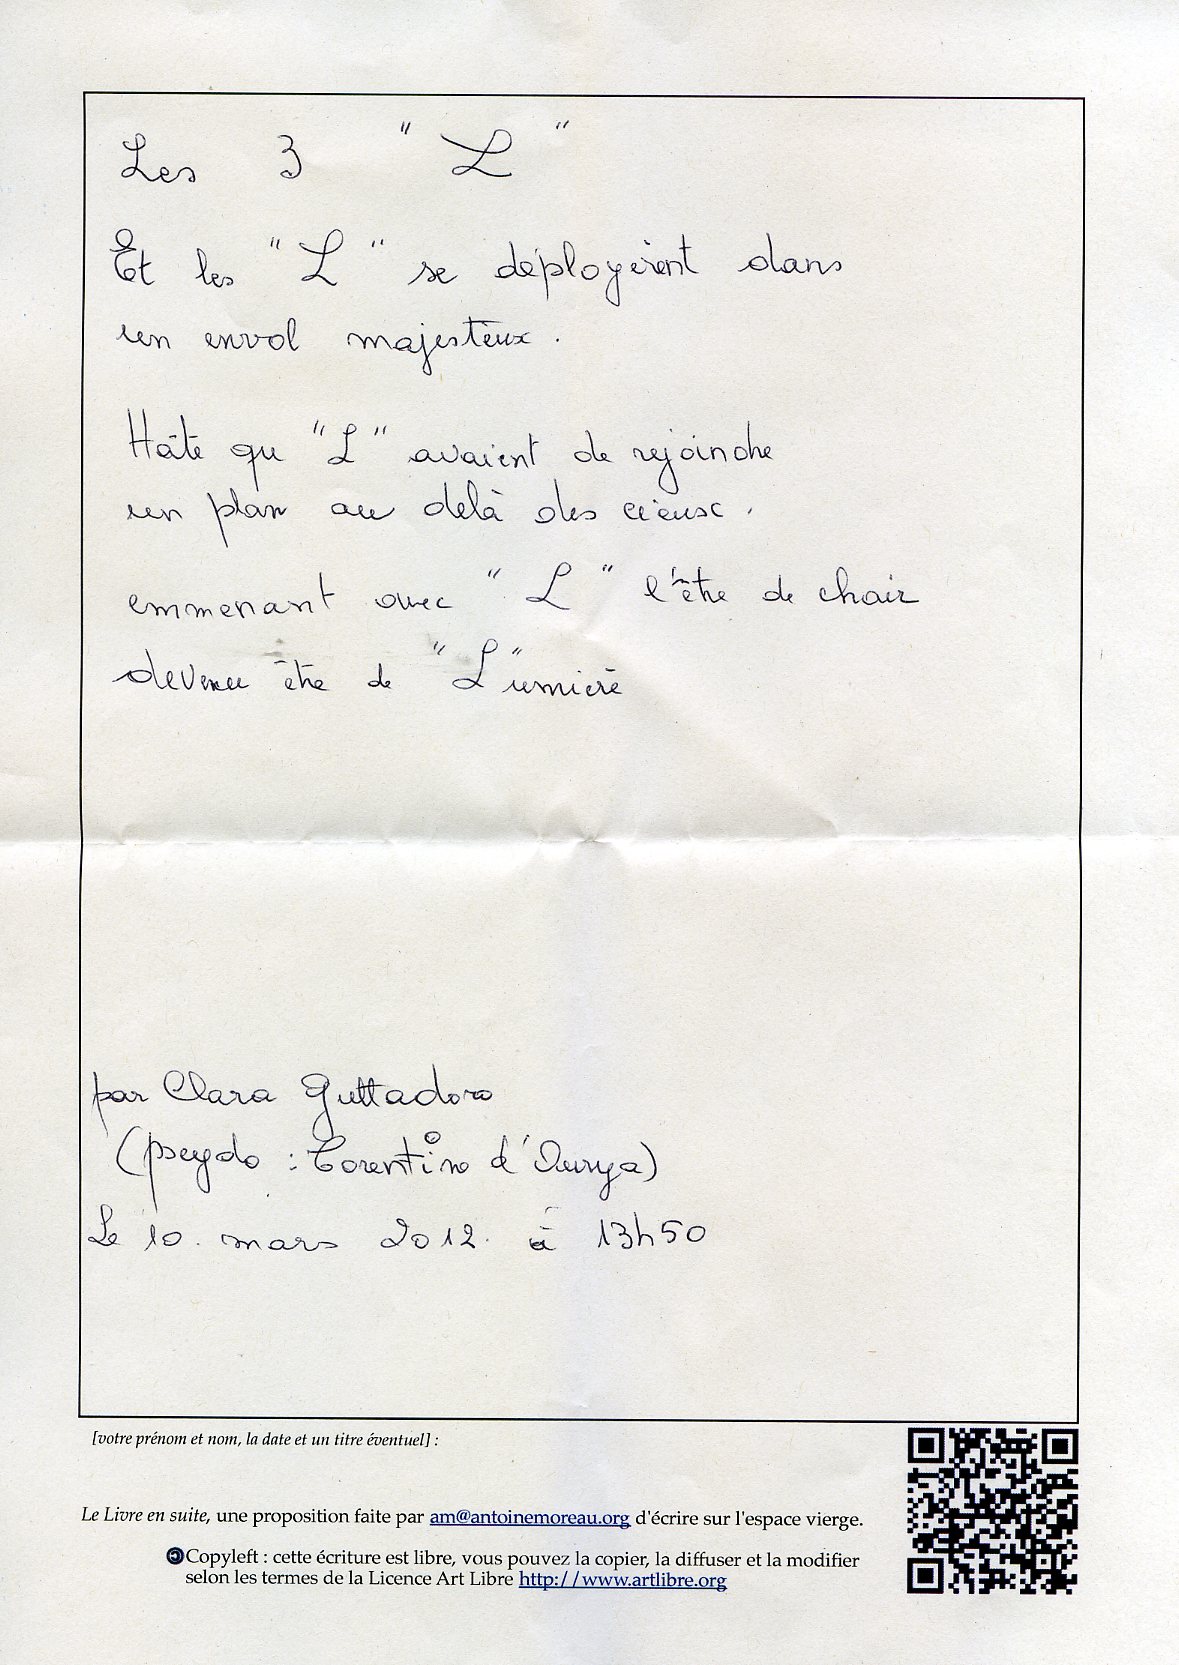 Les 3 "L"
Et les "L" se déployèrent dans
un envol majestueux.
Hâte qu "L" avaient de rejoindre
un plan au delà des cieux.
emmenant avec "L" l'être de chair
devenu être de "L"umière
par Clara Guttadoro
(pseydo : Corentino d'Aurya)
Le 10. mars 2012. à 13h50
[votre prénom et nom, la date et un titre éventuel] :
Le Livre en suite, une proposition faite par am@antoinemoreau.org d'écrire sur l'espace vierge.
Copyleft : cette écriture est libre, vous pouvez la copier, la diffuser et la modifier
selon les termes de la Licence Art Libre http://www.artlibre.org